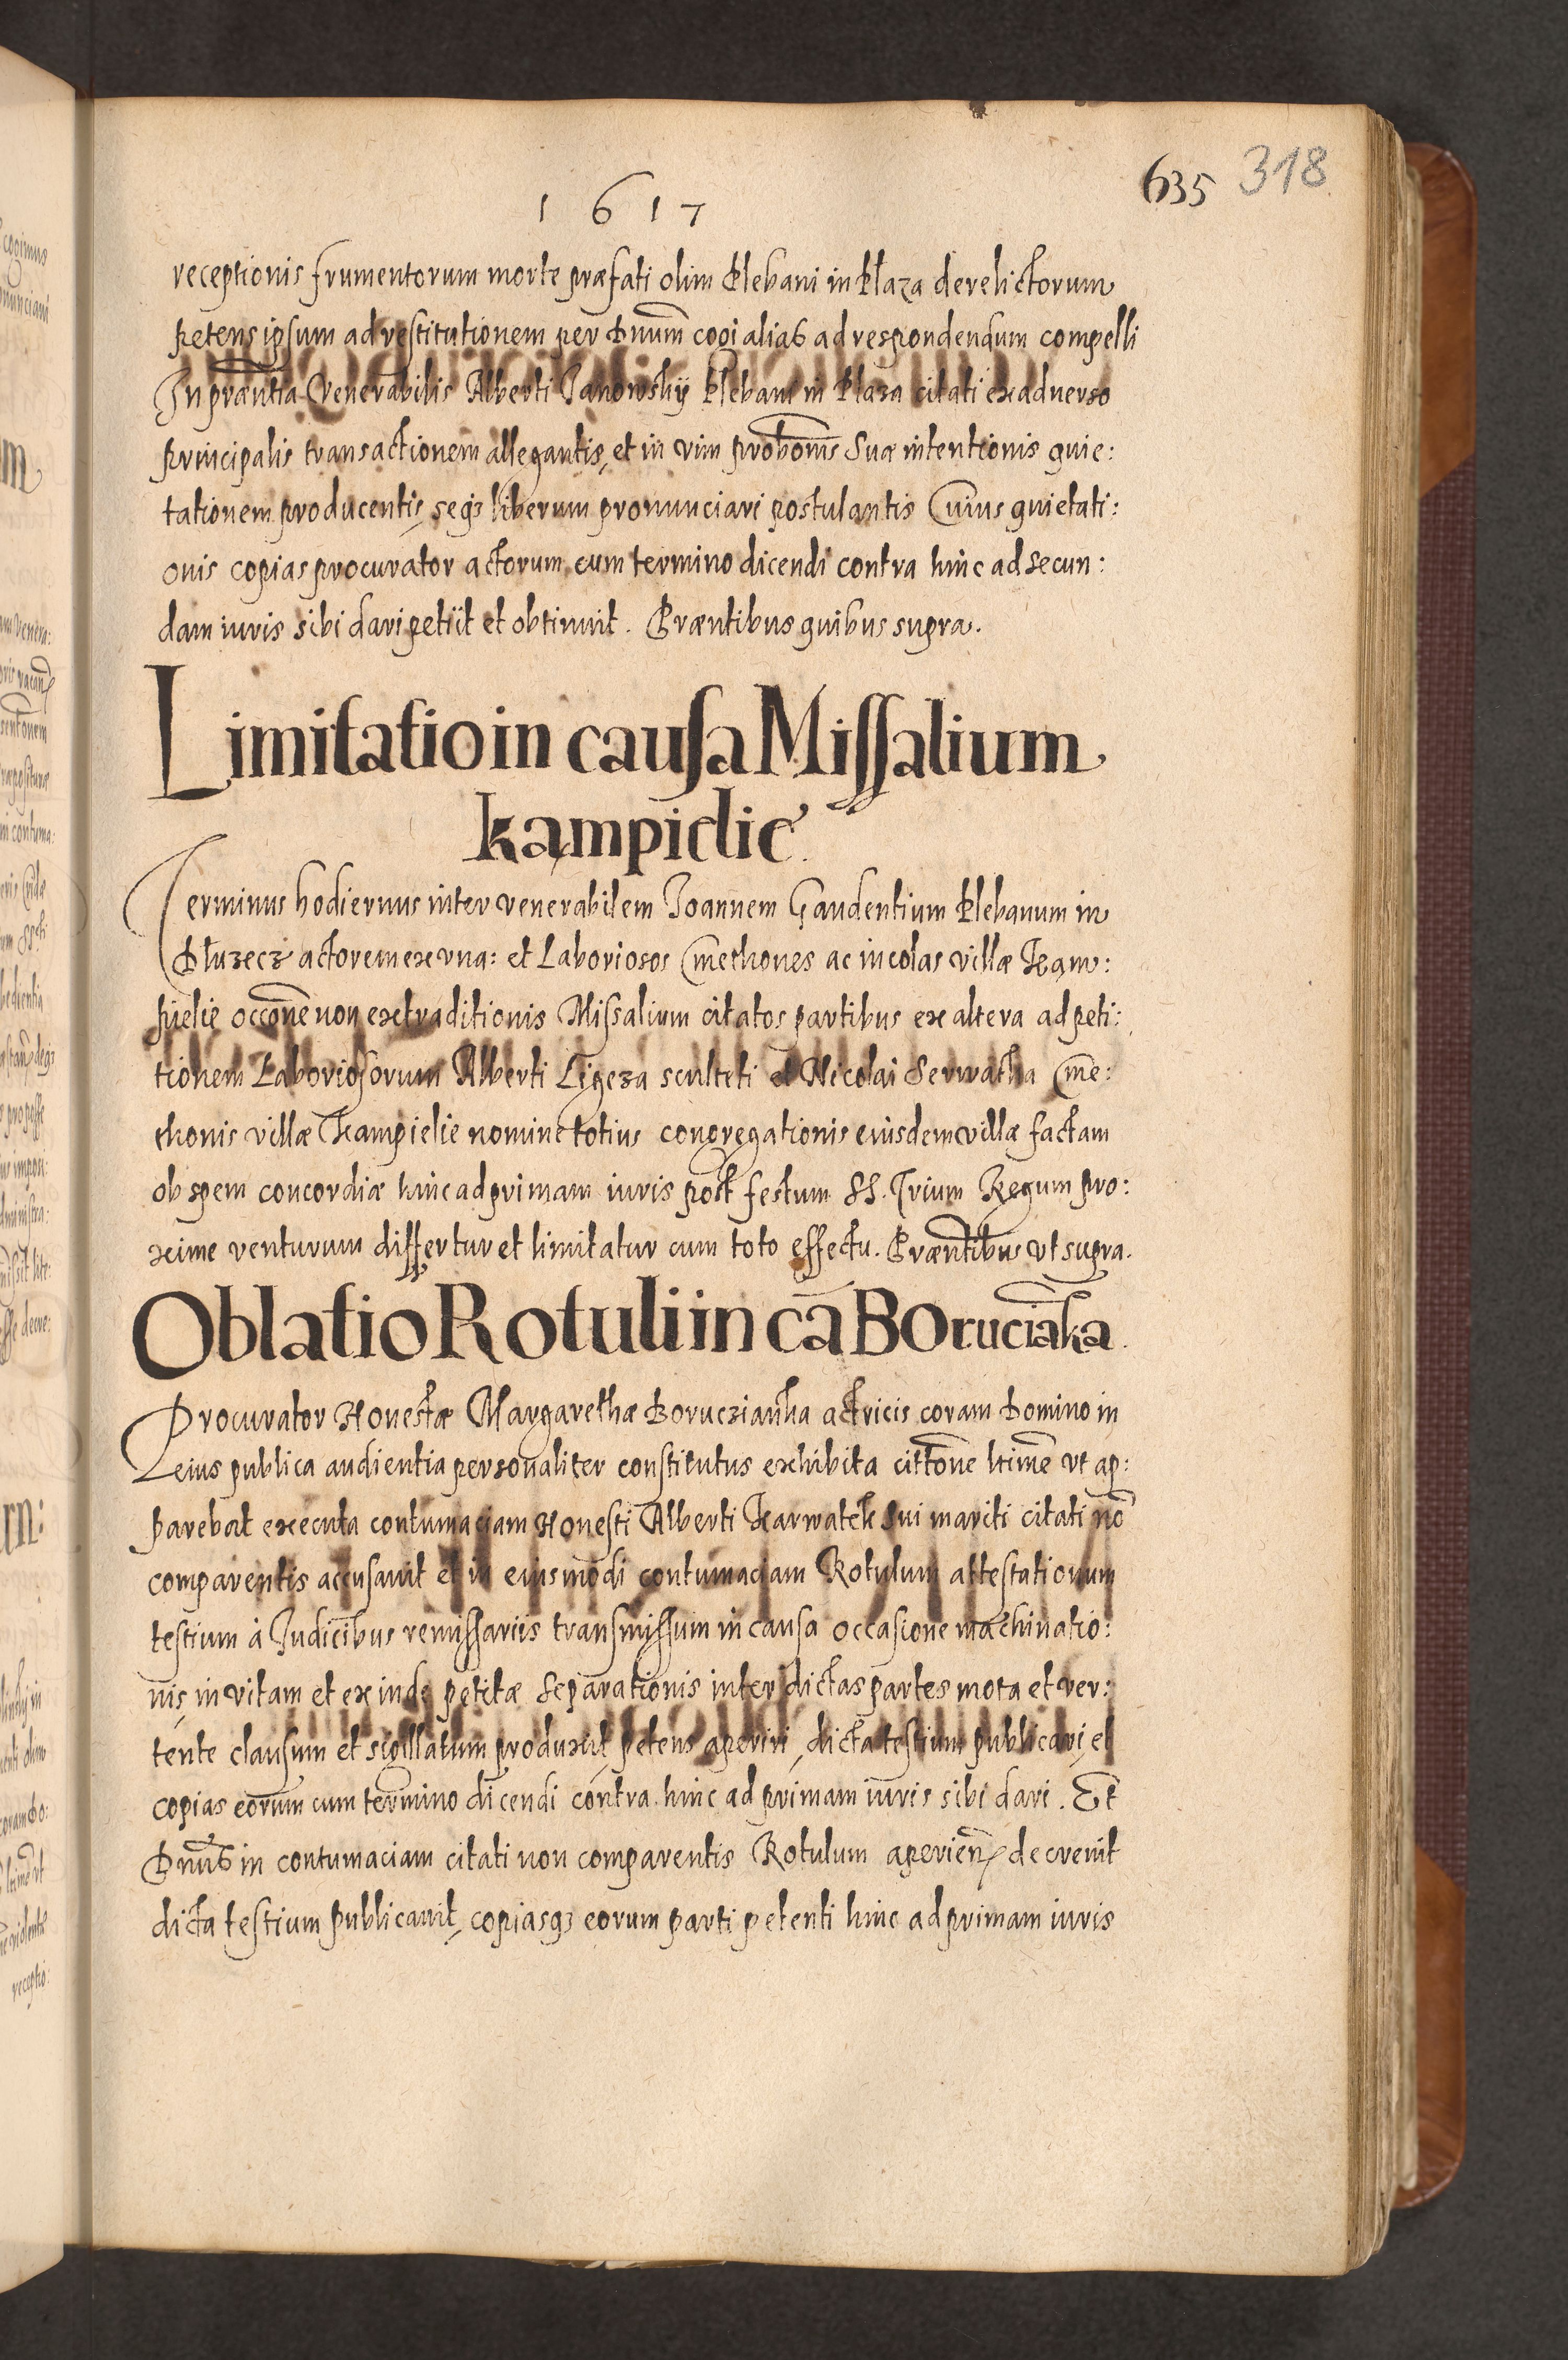 635 318
1617
receptionis frumentorum morte præfati olim Plebani in Płaza derelictorum
petens ipsum ad restitutionem per Dnum̄ cogi alias ad respondendum compelli
In præntia Venerabilis Alberti Janowsky Plebani in Płaza citati ex aduerso
principalis transactionem allegantis, et in vim probōnis suæ intentionis quie:
tationem producentis, seqꝫ liberum pronunciari postulantis Cuius quietati:
onis copias procurator actorum cum termino dicendi contra hinc ad secun:
dam iuris sibi dari petiit et obtinuit. Præntibus quibus supra.
Limitatio in causa Missalium
kampielie
Terminus hodiernus inter venerabilem Joannem Gaudentium Plebanum in
Płuzecz actorem ex vna: et Laboriosos Cmethones ac incolas villæ Kam:
pielie occōne non extraditionis Missalium citatos partibus ex altera ad peti:
tionem Laboriosorum Alberti Ligeza sculteti et Nicolai Serwatka Cme:
thonis villæ Kampielie nomine totius congregationis eiusdem villæ factam
ob spem concordiæ hinc ad primam iuris post festum SS. Trium Regum pro:
xime venturum differtur et limitatur cum toto effectu. Præntibus vt supra.
Oblatio Rotuli in cā Boruciāka.
Procurator Honestæ Margarethæ Boruczianka actricis coram Domino in
eius publica audientia personaliter constitutus exhibita cittōne ltimē vt ap:
parebat executa contumaciam Honesti Alberti Karwatek sui mariti citati nō
comparentis accusauit et in eiusmodi contumaciam Rotulum attestationum
testium à Judicibus remissariis transmissum in causa occasione machinatio:
nis, in vitam et exinde petitæ separationis inter dictas partes mota et ver:
tente clausum et sigillatum produxit, petens aperiri, dicta testium publicari, et
copias eorum cum termino dicendi contra hinc ad primam iuris sibi dari. Et
Dnūs in contumaciam citati non comparentis Rotulum aperien̄ decreuit
dicta testium publicauit, copiasqꝫ eorum parti petenti hinc ad primam iuris